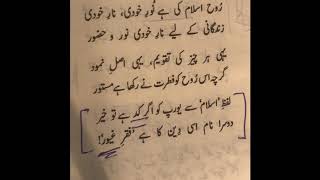 رُوح اسلام کی ہے نُورِ خودی، نارِ خودی
زندگانی کے لیے نارِ خودی نور و حضور
یہی ہر چیز کی تقویم، یہی اصلِ نمود
گرچہ اس رُوح کو فطرت نے رکھا ہے مستور
لفظِ 'اسلام' سے یورپ کو اگر کد ہے تو خیر
دوسرا نام اسی دِین کا ہے 'فقرِ غیور'!